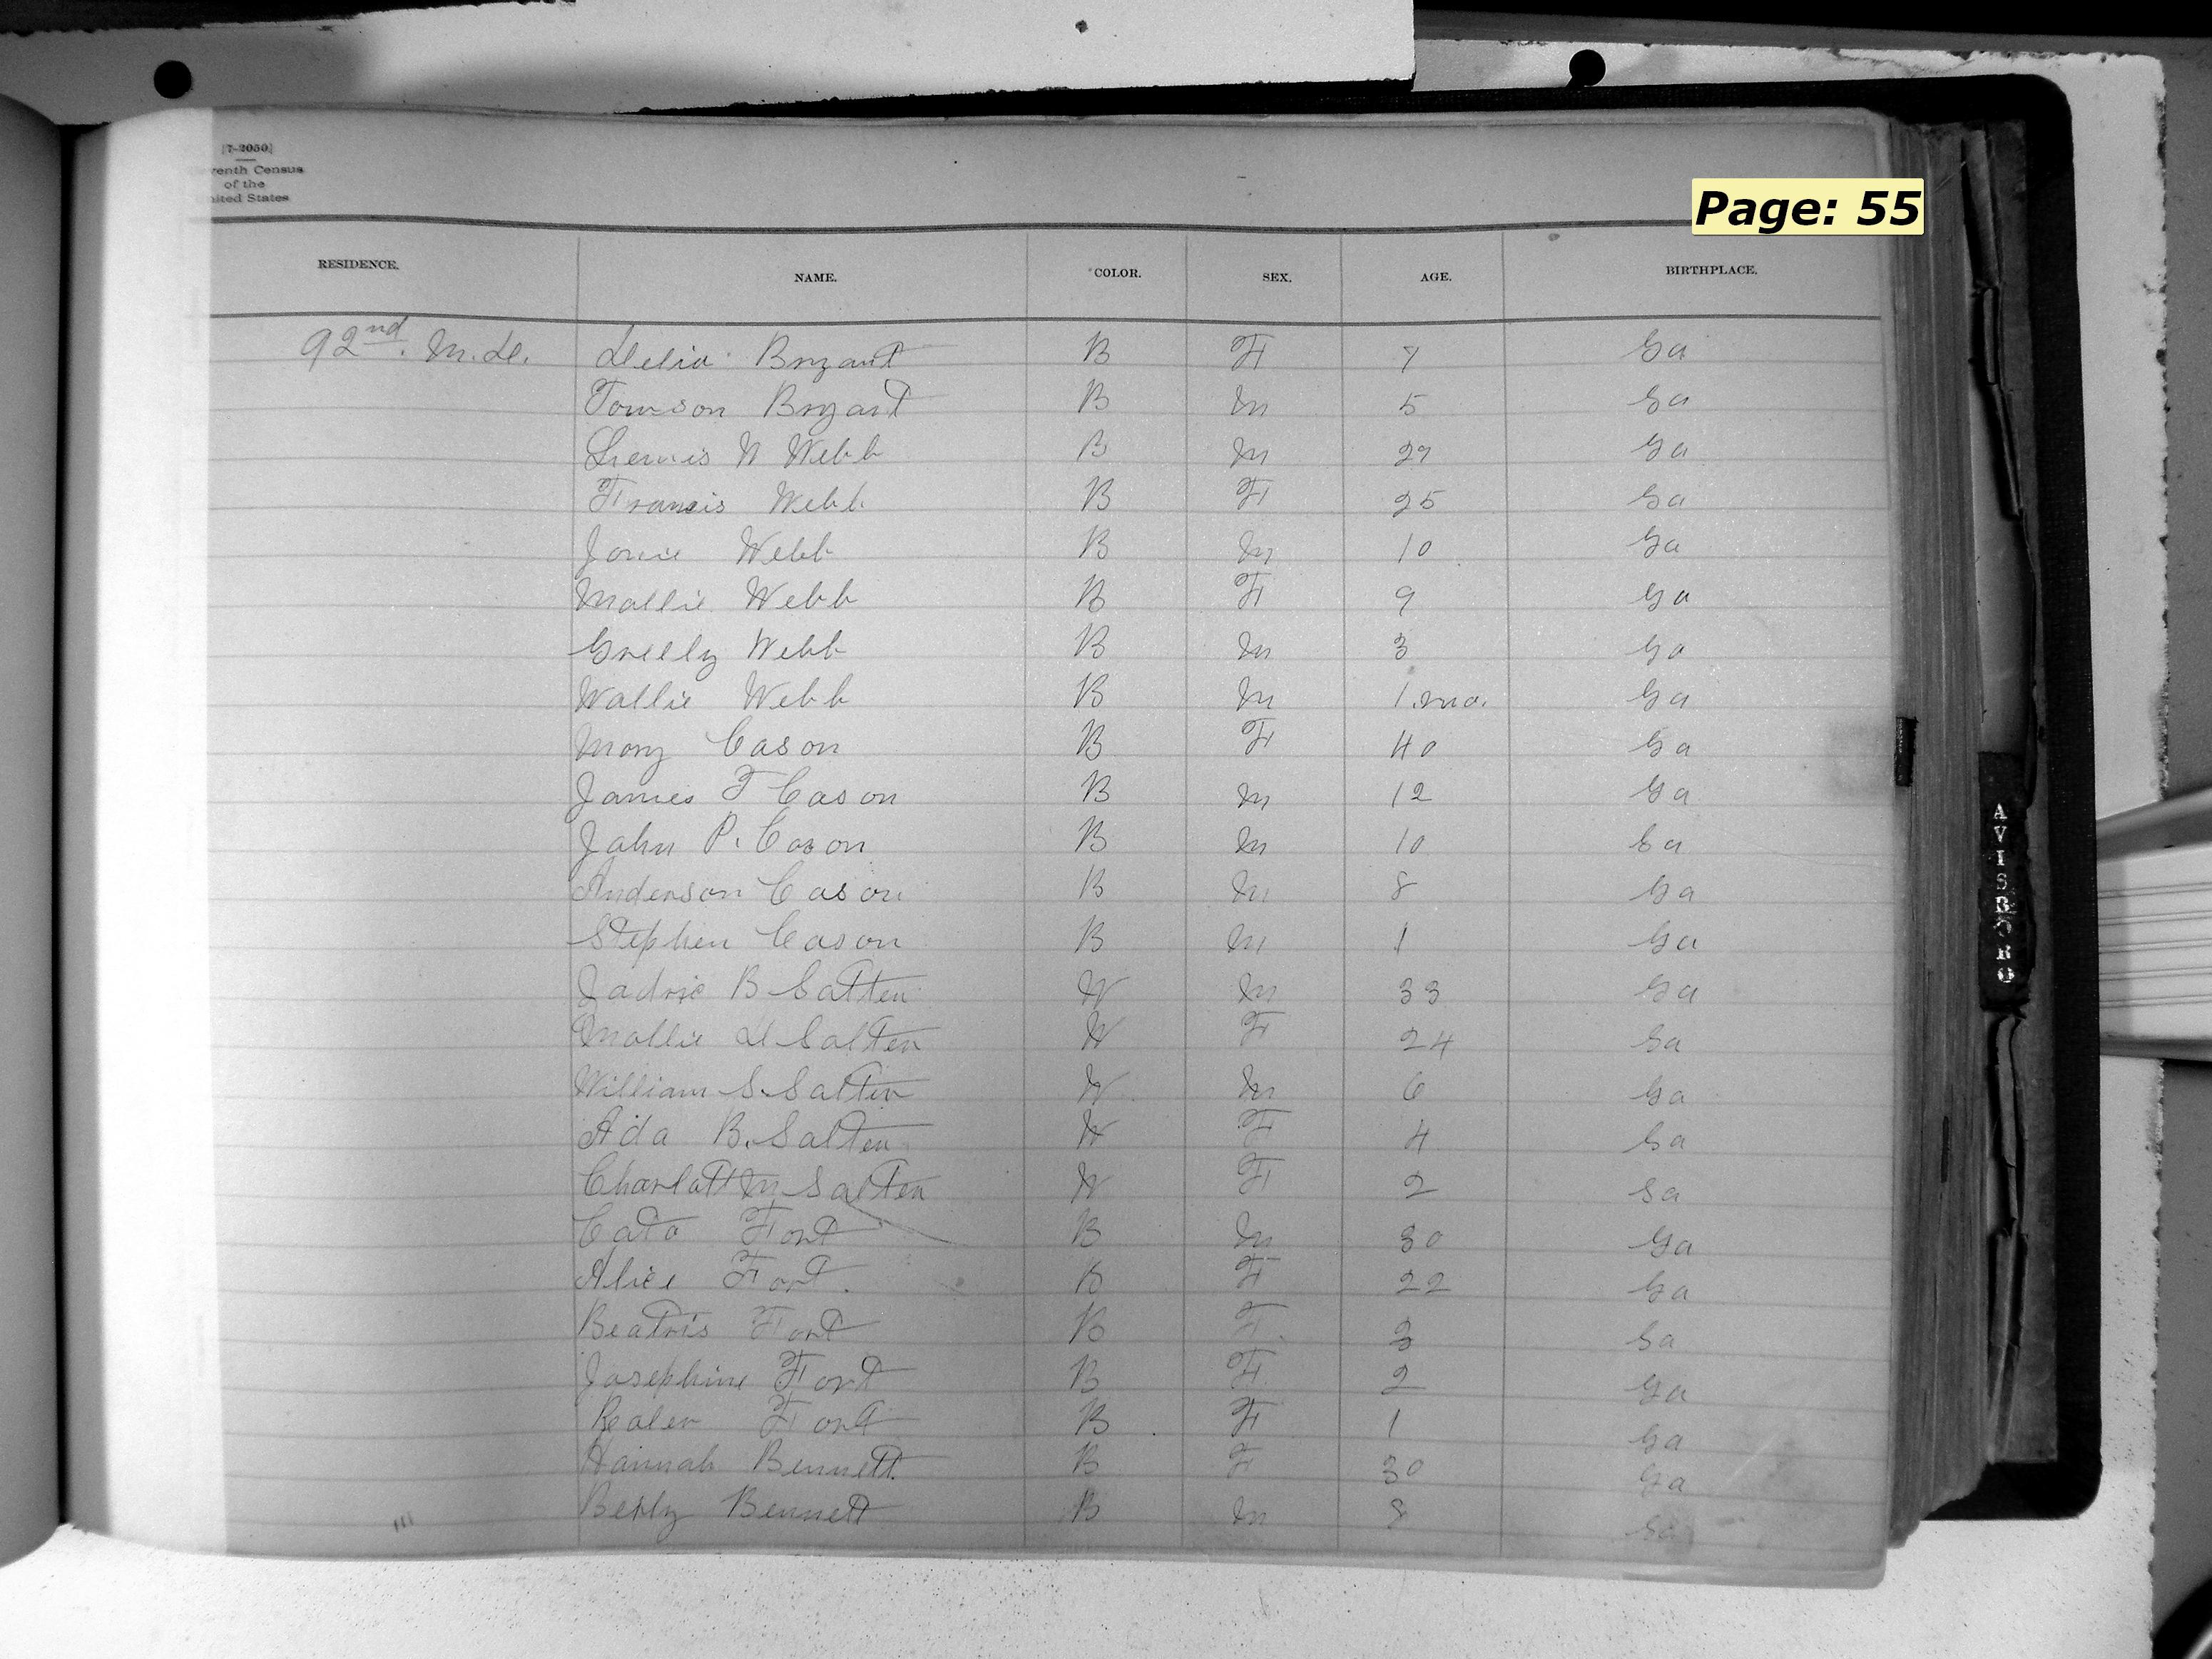 [7-2050]
Eleventh Census
of the
United States
Page: 55
RESIDENCE. NAME. COLOR. SEX. AGE. BIRTHPLACE.
92nd. M.D. Delia Bryant B F 7 Ga
Tomson Bryant B M 5 Ga
Lewis W Webb B M 29 Ga
Francis Webb B F 25 Ga
Webb B M 10 Ga
Mollie Webb B F 9 Ga
Greely Webb B M 3 Ga
Wallie Webb B M 1.mo. Ga
Mary Cason B F 40 Ga
James F Cason B M 12 Ga
John P. Cason B M 10 Ga
Anderson Cason B M 8 Ga
Stephen Cason B M 1 Ga
B Salten W M 33 Ga
Mollie D Salten W F 24 Ga
William S. Salten W M 6 Ga
Ada B. Salten W F 4 Ga
Charlott M Salten W F 2 Ga
Cato Fort B M 30 Ga
Alice Fort. B F 22 Ga
Beatris Fort B F 3 Ga
Josephine Fort B F 2 Ga
Fort B F 1 Ga
Hannah Bennett. B F 30 Ga
Bennett B M 8 Ga
AVISBORO